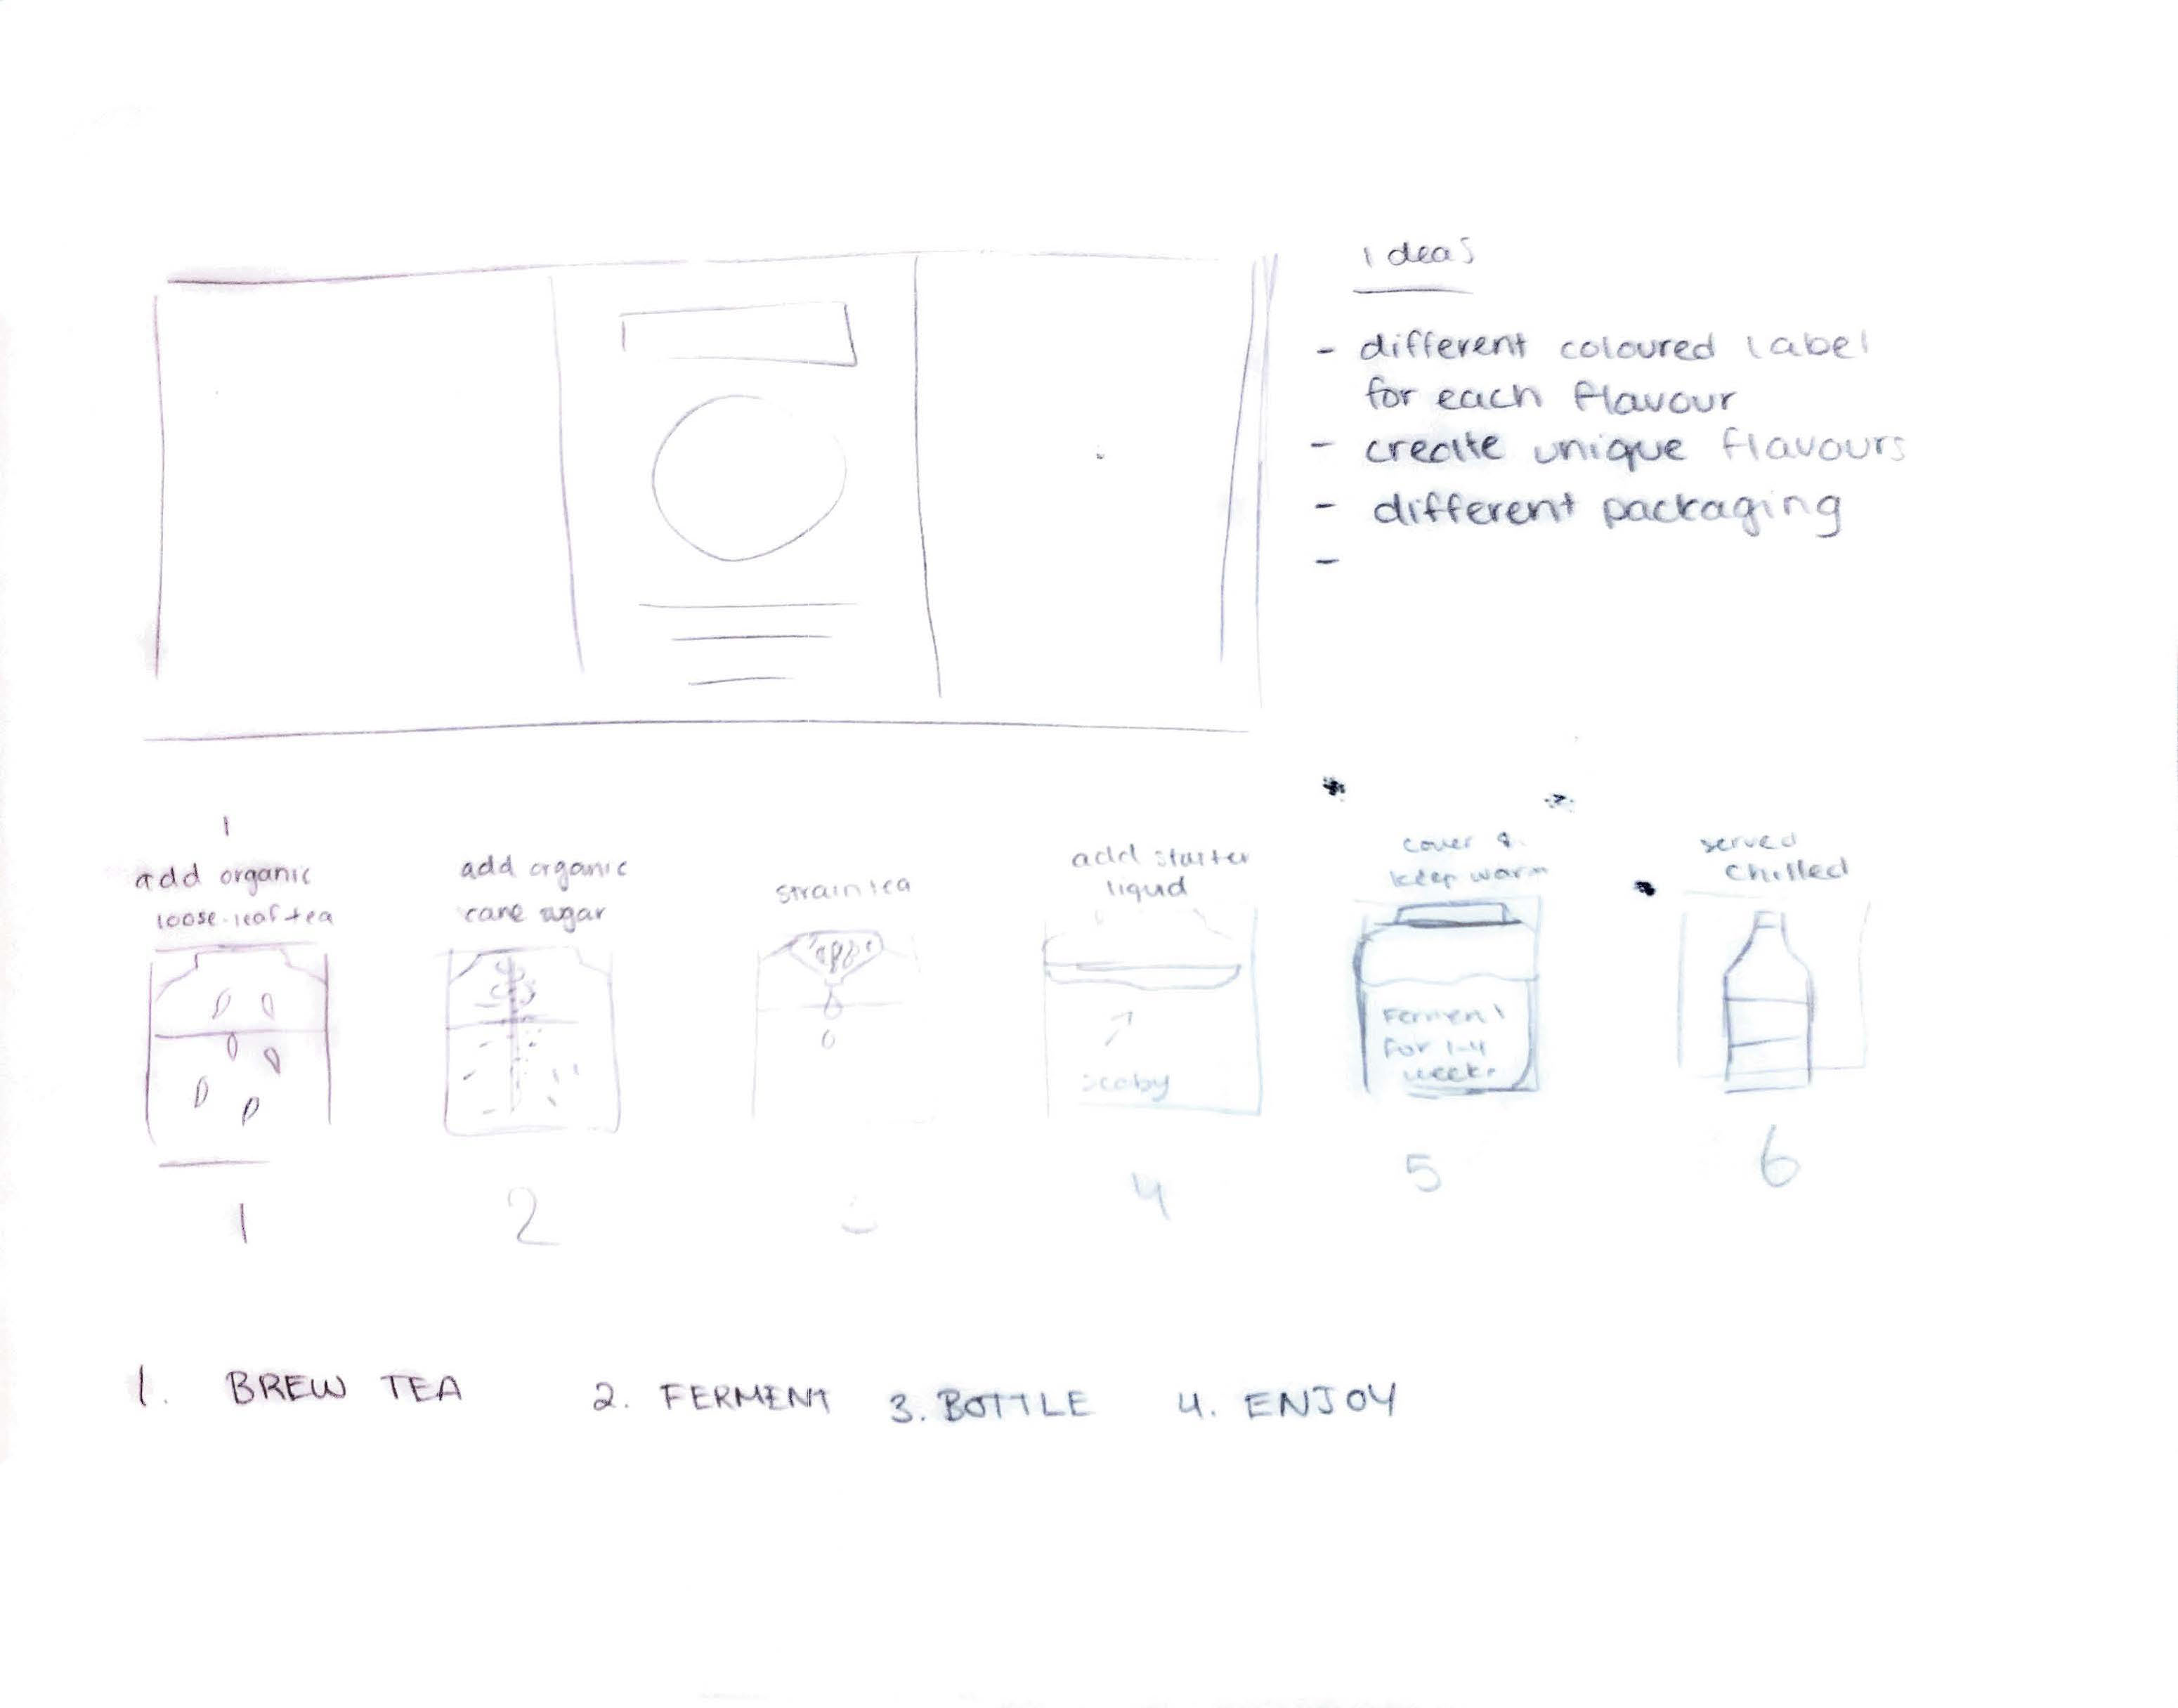 ideas
- different coloured label
for each flavour
- create unique flavours
- different packaging
-
1
add organic
loose-leaf tea
add organic
cane sugar
strain tea
add starter
liquid
cover &
keep warm
served
chilled
scoby
Ferment
for 1-4
weeks
1
2
4
5
6
1. BREW TEA
2. FERMENT
3. BOTTLE
4. ENJOY